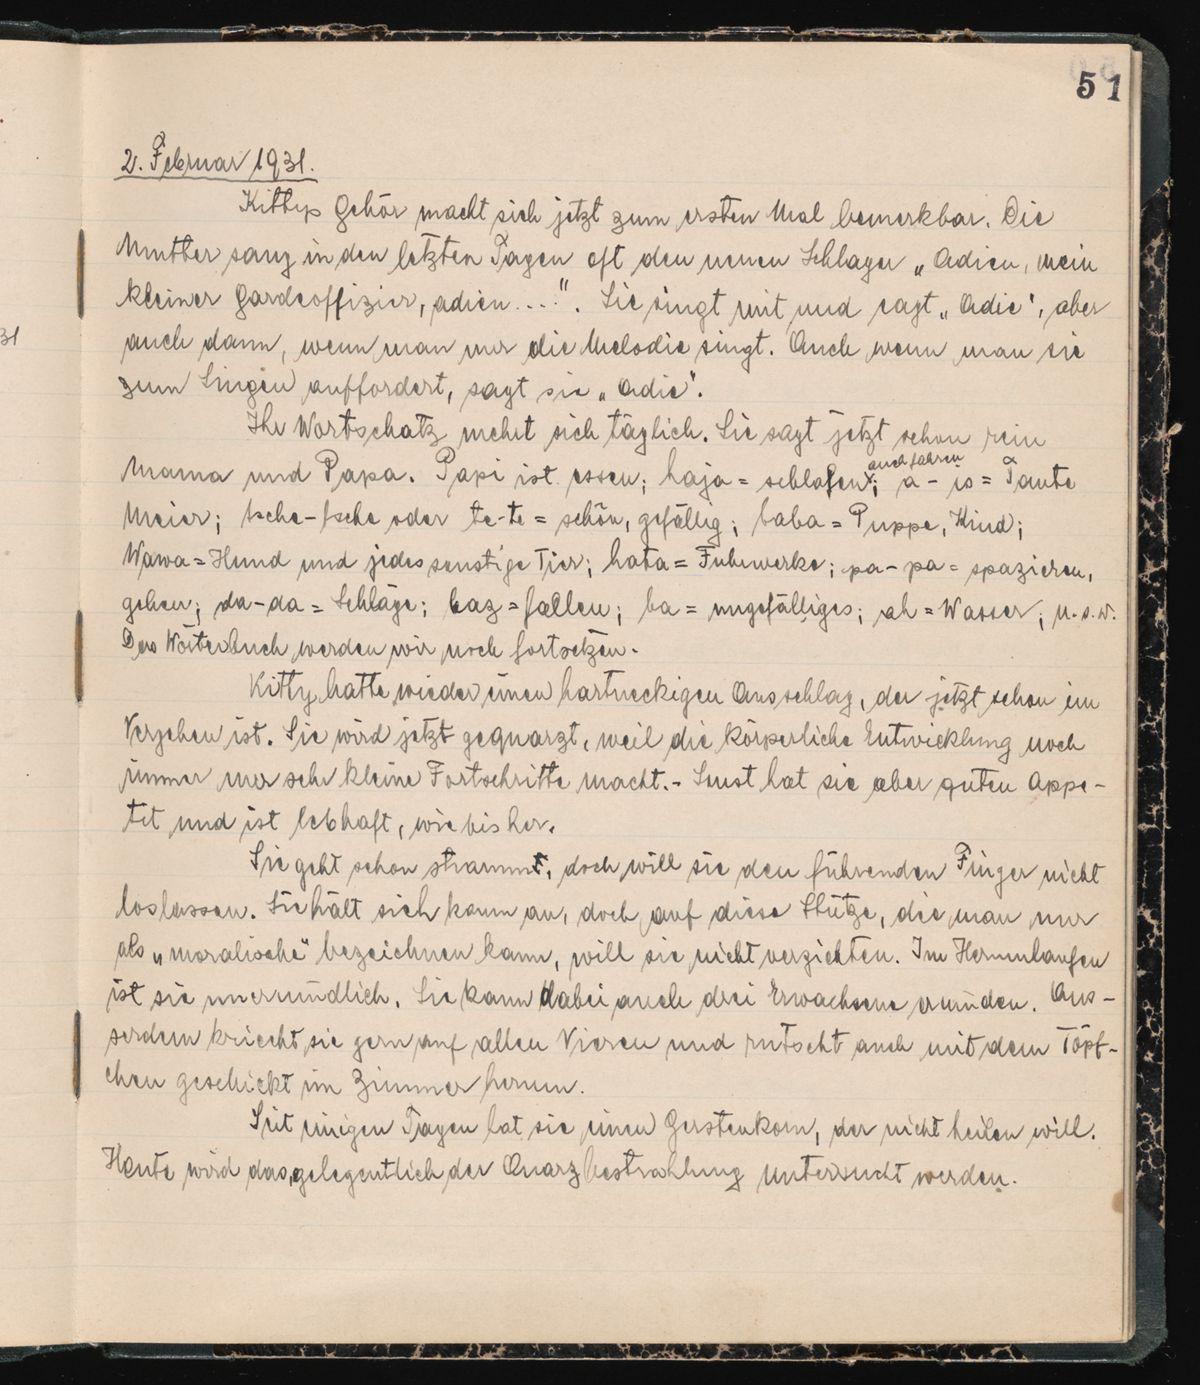 51
2. Februar 1931.
Kittys Gehör macht sich jetzt zum ersten Mal bemerkbar. Die
Mutter sang in den letzten Tagen oft den neuen Schlager „Adieu, mein
kleiner Gardeoffizier, adieu...". Sie singt mit und sagt „Adie", aber
auch dann, wenn man nur die Melodie singt. Auch wenn man sie
zum Singen auffordert, sagt sie „Adie".
Ihr Wortschatz mehrt sich täglich. Sie sagt jetzt schon rein
auch fahren
Mama und Papa. Papi ist essen; haja = schlafen; a - io = Tante
Meier; tsche-tsche oder te-te = schön, gefällig; baba = Puppe, Kind;
Wawa = Hund und jedes sonstige Tier; hata = Fuhrwerke; pa-pa = spazieren,
gehen; da-da = Schläge; baz = fallen; ba = ungefälliges; ah = Wasser; u.s.w.
Das Wörterbuch werden wir noch fortsetzen.
Kitty hatte wieder einen hartneckigen Ausschlag, der jetzt schon im
Vergehen ist. Sie wird jetzt gequarzt, weil die körperliche Entwicklung noch
immer nur sehr kleine Fortschritte macht.- Sonst hat sie aber guten Appe-
tit und ist lebhaft, wie bisher.
Sie geht schon stramm, doch will sie den führenden Finger nicht
loslassen. Sie hält sich kaum an, doch auf diese Stütze, die man nur
als „moralische" bezeichnen kann, will sie nicht verzichten. Im Herumlaufen
ist sie unermüdlich. Sie kann dabei auch drei Erwachsene ermüden. Aus-
serdem kriecht sie gern auf allen Vieren und rutscht auch mit dem Töpf-
chen geschickt im Zimmer herum.
Seit einigen Tagen hat sie einen Gerstenkorn, der nicht heilen will.
Heute wird das, gelegentlich der Quarzbestrahlung untersucht werden.
31